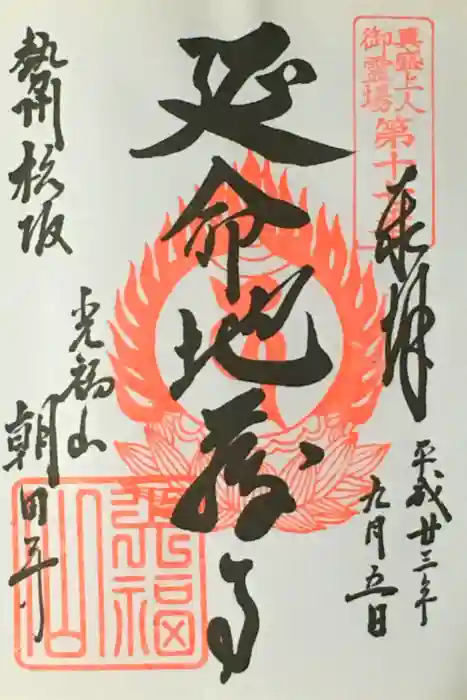 真盛上人
御霊場
第十
奉拝
平成廿三年
九月五日
延命地蔵尊
勢州松阪
光福山
朝田寺
光福
山